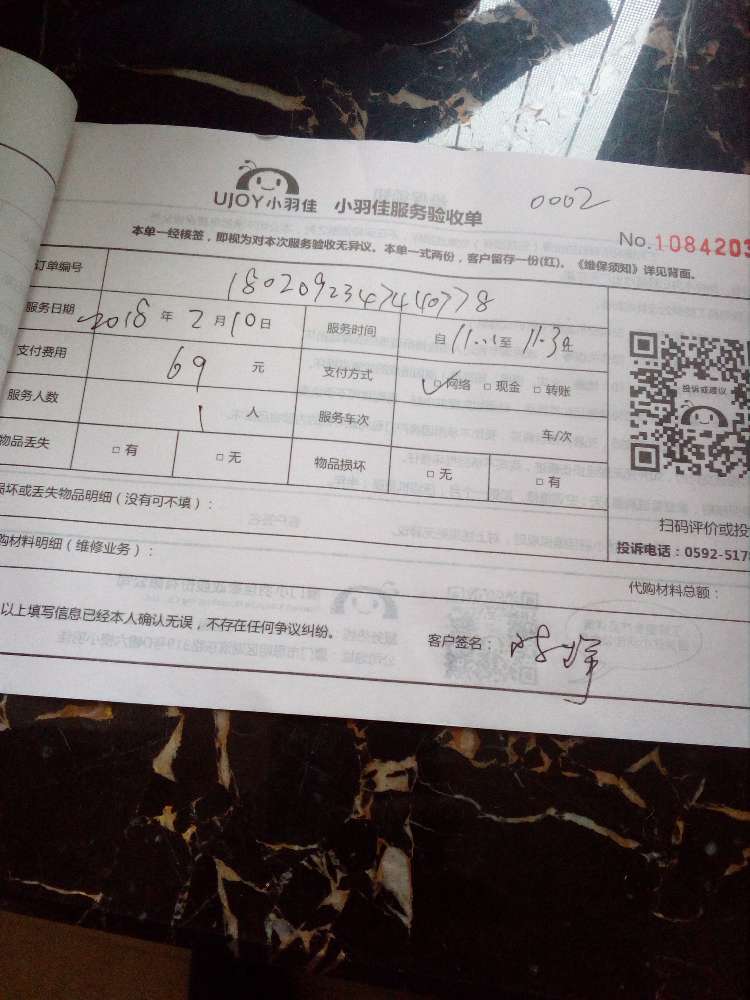 UJOY小羽佳 小羽佳服务验收单 0002
No.1084203
本单一经核签，即视为对本次服务验收无异议。本单一式两份，客户留存一份(红)。《维保须知》详见背面。
订单编号 18020923474440778
服务日期 2018 年 2 月 10 日 服务时间 自 11:.. 至 11:3
支付费用 69 元 支付方式 ✓□ 网络 □ 现金 □ 转账
服务人数 1 人 服务车次 车/次
物品丢失 □ 有 □ 无 物品损坏 □ 无 □ 有
投诉或建议
损坏或丢失物品明细（没有可不填）：
扫码评价或投
购材料明细（维修业务）：
投诉电话：0592-517
代购材料总额：
以上填写信息已经本人确认无误，不存在任何争议纠纷。 客户签名：